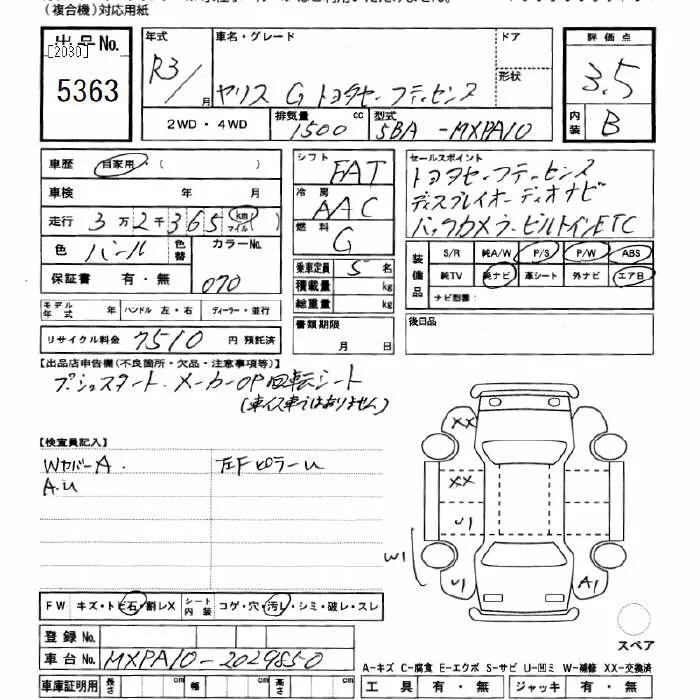 （複合機）対応用紙
出品No.
[2030]
5363
年式
R3/
月
車名・グレード
ヤリス G トヨタセーフティセンス
ドア
形状
評価点
3.5
内装
B
2WD・4WD
排気量
1500 cc
型式
5BA-MXPA10
車歴 自家用・( )
車検 年 月
走行 3万2千365 km マイル ( )
色 パール 色替 カラーNo. 070
保証書 有・無
シフト FAT
冷房 AAC
燃料 G
乗車定員 5 名
積載量 kg
総重量 kg
セールスポイント
トヨタセーフティーセンス
ディスプレイオーディオナビ
バックカメラ・ビルトインETC
装備品
S/R 純A/W P/S P/W ABS
純TV 純ナビ 革シート 外ナビ エアB
ナビ型番:
モデル年式 年 ハンドル 左・右 ディーラー・並行
リサイクル料金 7510 円 預託済
書類期限
月 日
後日品
【出品店申告欄(不良箇所・欠品・注意事項等)】
プッシュスタート・メーカーOP回転シート
(車イス車ではありません)
【検査員記入】
WカバーA. 左FピラーU
A.U
XX
XX
U1
W1
U1
A1
スペア
FW キズ・トビ石・割レX シート内装 コゲ・穴・汚レ・シミ・破レ・スレ
登録No.
車台No. MXPA10-2029850
車庫証明用 長さ cm 幅 cm 高さ cm
A-キズ C-腐食 E-エクボ S-サビ U-凹ミ W-補修 XX-交換済
工具 有・無 ジャッキ 有・無